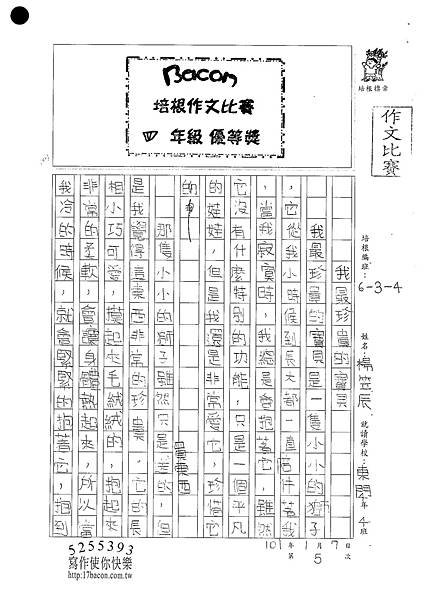 Bacon
培根作文比賽
四 年級 優等獎
培根標章
作文比賽
培根編班：6-3-4
姓名：楊笠辰
就讀學校：東門 4年 班
我最珍貴的寶貝
我最珍貴的寶貝是一隻小小的獅子
，它從我小時候到長大都一直陪伴著我
，當我寂寞時，我總是會抱著它，雖然
它沒有什麼特別的功能，只是一個平凡
的娃娃，但是我還是非常愛它，珍惜它
的
那隻小小的獅子雖然只是 的，但
買東西
是我覺得這東西非常的珍貴，它的長
相小巧可愛，摸起來毛絨絨的，抱起來
非常的柔軟，會讓身體熱起來，所以當
我冷的時候，就會緊緊的抱著它，抱到
101年 1月 7日
第 5 次
5255393
寫作使你快樂
http://17bacon.com.tw